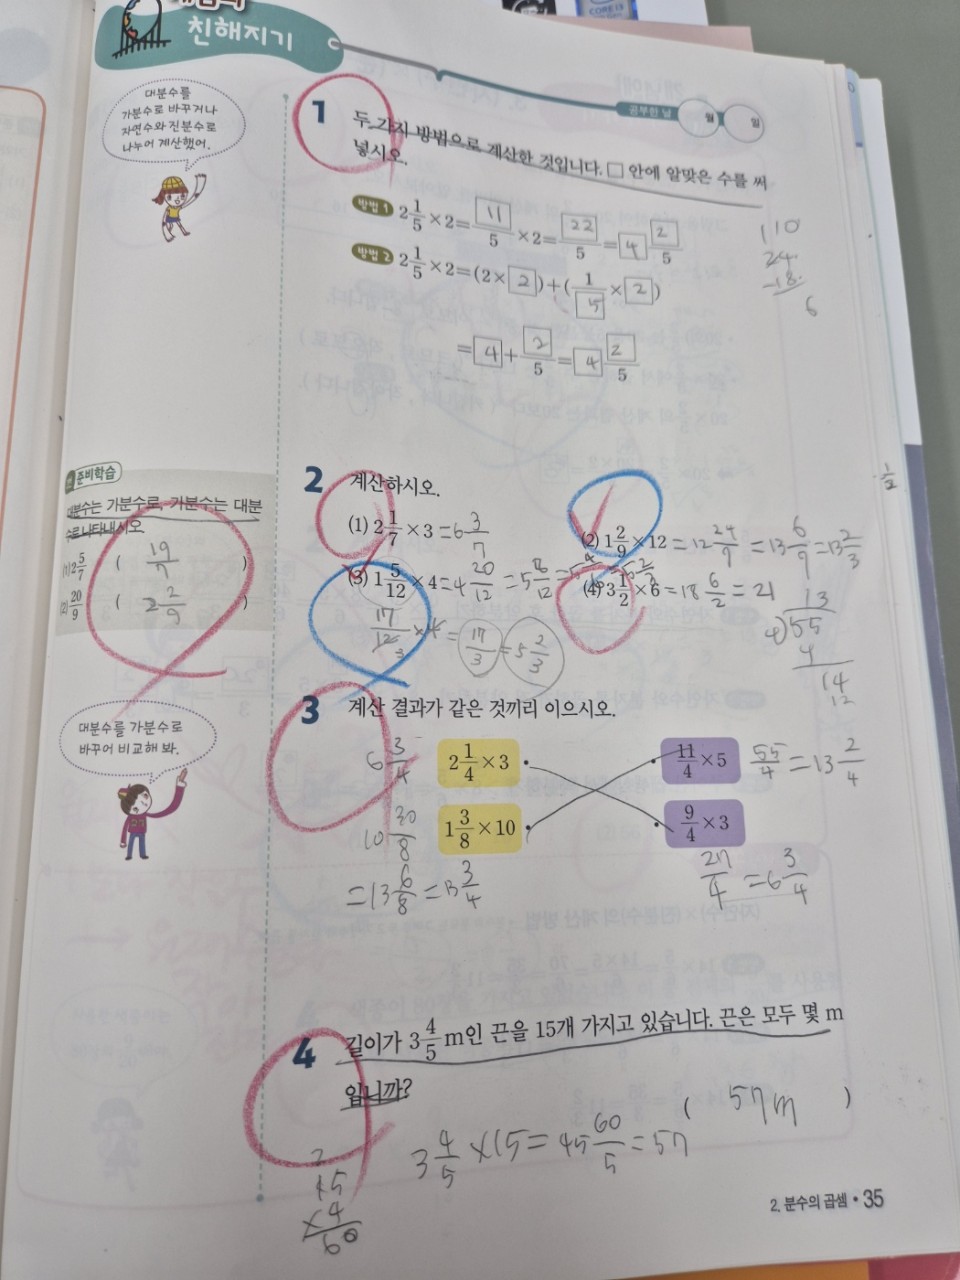 친해지기
공부한 날 월 일
대분수를
가분수로 바꾸거나
자연수와 진분수로
나누어 계산했어.
1 두 가지 방법으로 계산한 것입니다. □ 안에 알맞은 수를 써
넣시오.
방법 1 2 1/5 × 2 = 11/5 × 2 = 22/5 = 4 2/5
방법 2 2 1/5 × 2 = (2 × 2) + (1/5 × 2)
= 4 + 2/5 = 4 2/5
110
24
-18
6
준비학습
대분수는 가분수로, 가분수는 대분
수로 나타내시오.
(1) 2 5/7 ( 19/7 )
(2) 20/9 ( 2 2/9 )
2 계산하시오.
(1) 2 1/7 × 3 = 6 3/7
(2) 1 2/9 × 12 = 12 24/9 = 13 6/9 = 13 2/3
(3) 1 5/12 × 4 = 4 20/12 = 5 8/12
17/12 × 4 = 17/3 = 5 2/3
(4) 3 1/2 × 6 = 18 6/2 = 21
1/2
13
4)55
4
14
12
대분수를 가분수로
바꾸어 비교해 봐.
3 계산 결과가 같은 것끼리 이으시오.
6 3/4 2 1/4 × 3 11/4 × 5 55/4 = 13 2/4
10 30/8 1 3/8 × 10 9/4 × 3
= 13 6/8 = 13 3/4 27/4 = 6 3/4
4 길이가 3 4/5 m인 끈을 15개 가지고 있습니다. 끈은 모두 몇 m
입니까?
( 57m )
3 4/5 × 15 = 45 60/5 = 57
2
15
×4
60
2. 분수의 곱셈 • 35